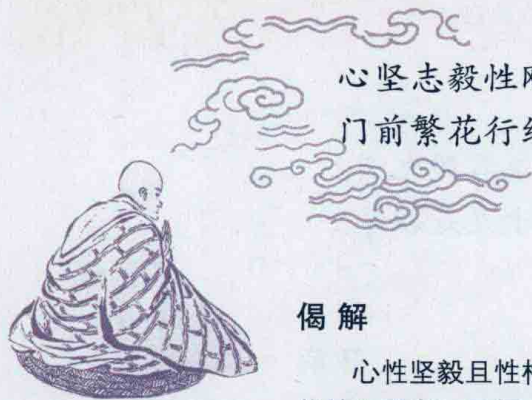 心坚志毅性
门前繁花行
偈解
心性坚毅且性